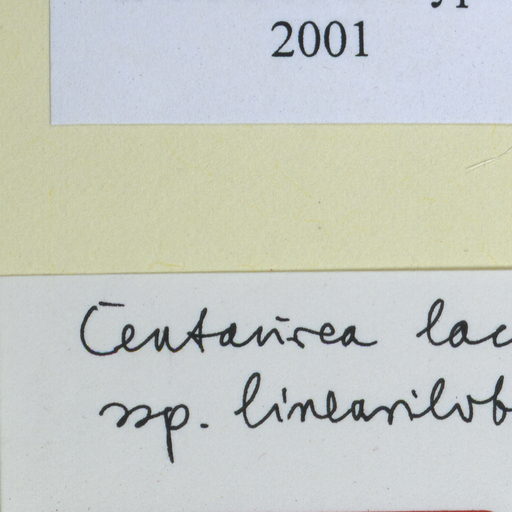 2001
Centaurea lac
ssp. linearilob